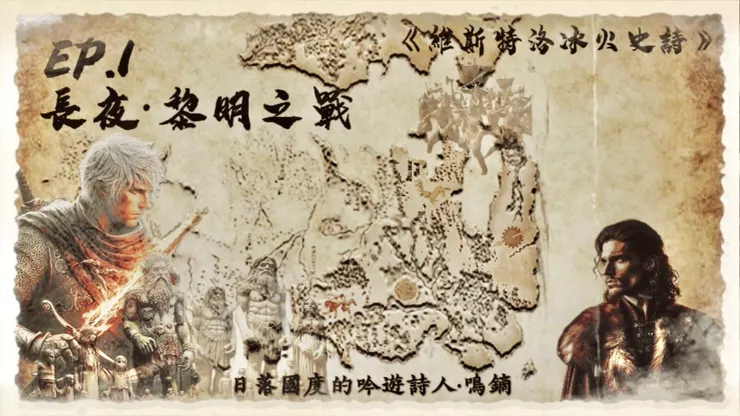 《維斯特洛冰火史詩》
EP.1
長夜·黎明之戰
日落國度的吟遊詩人·鳴鏑